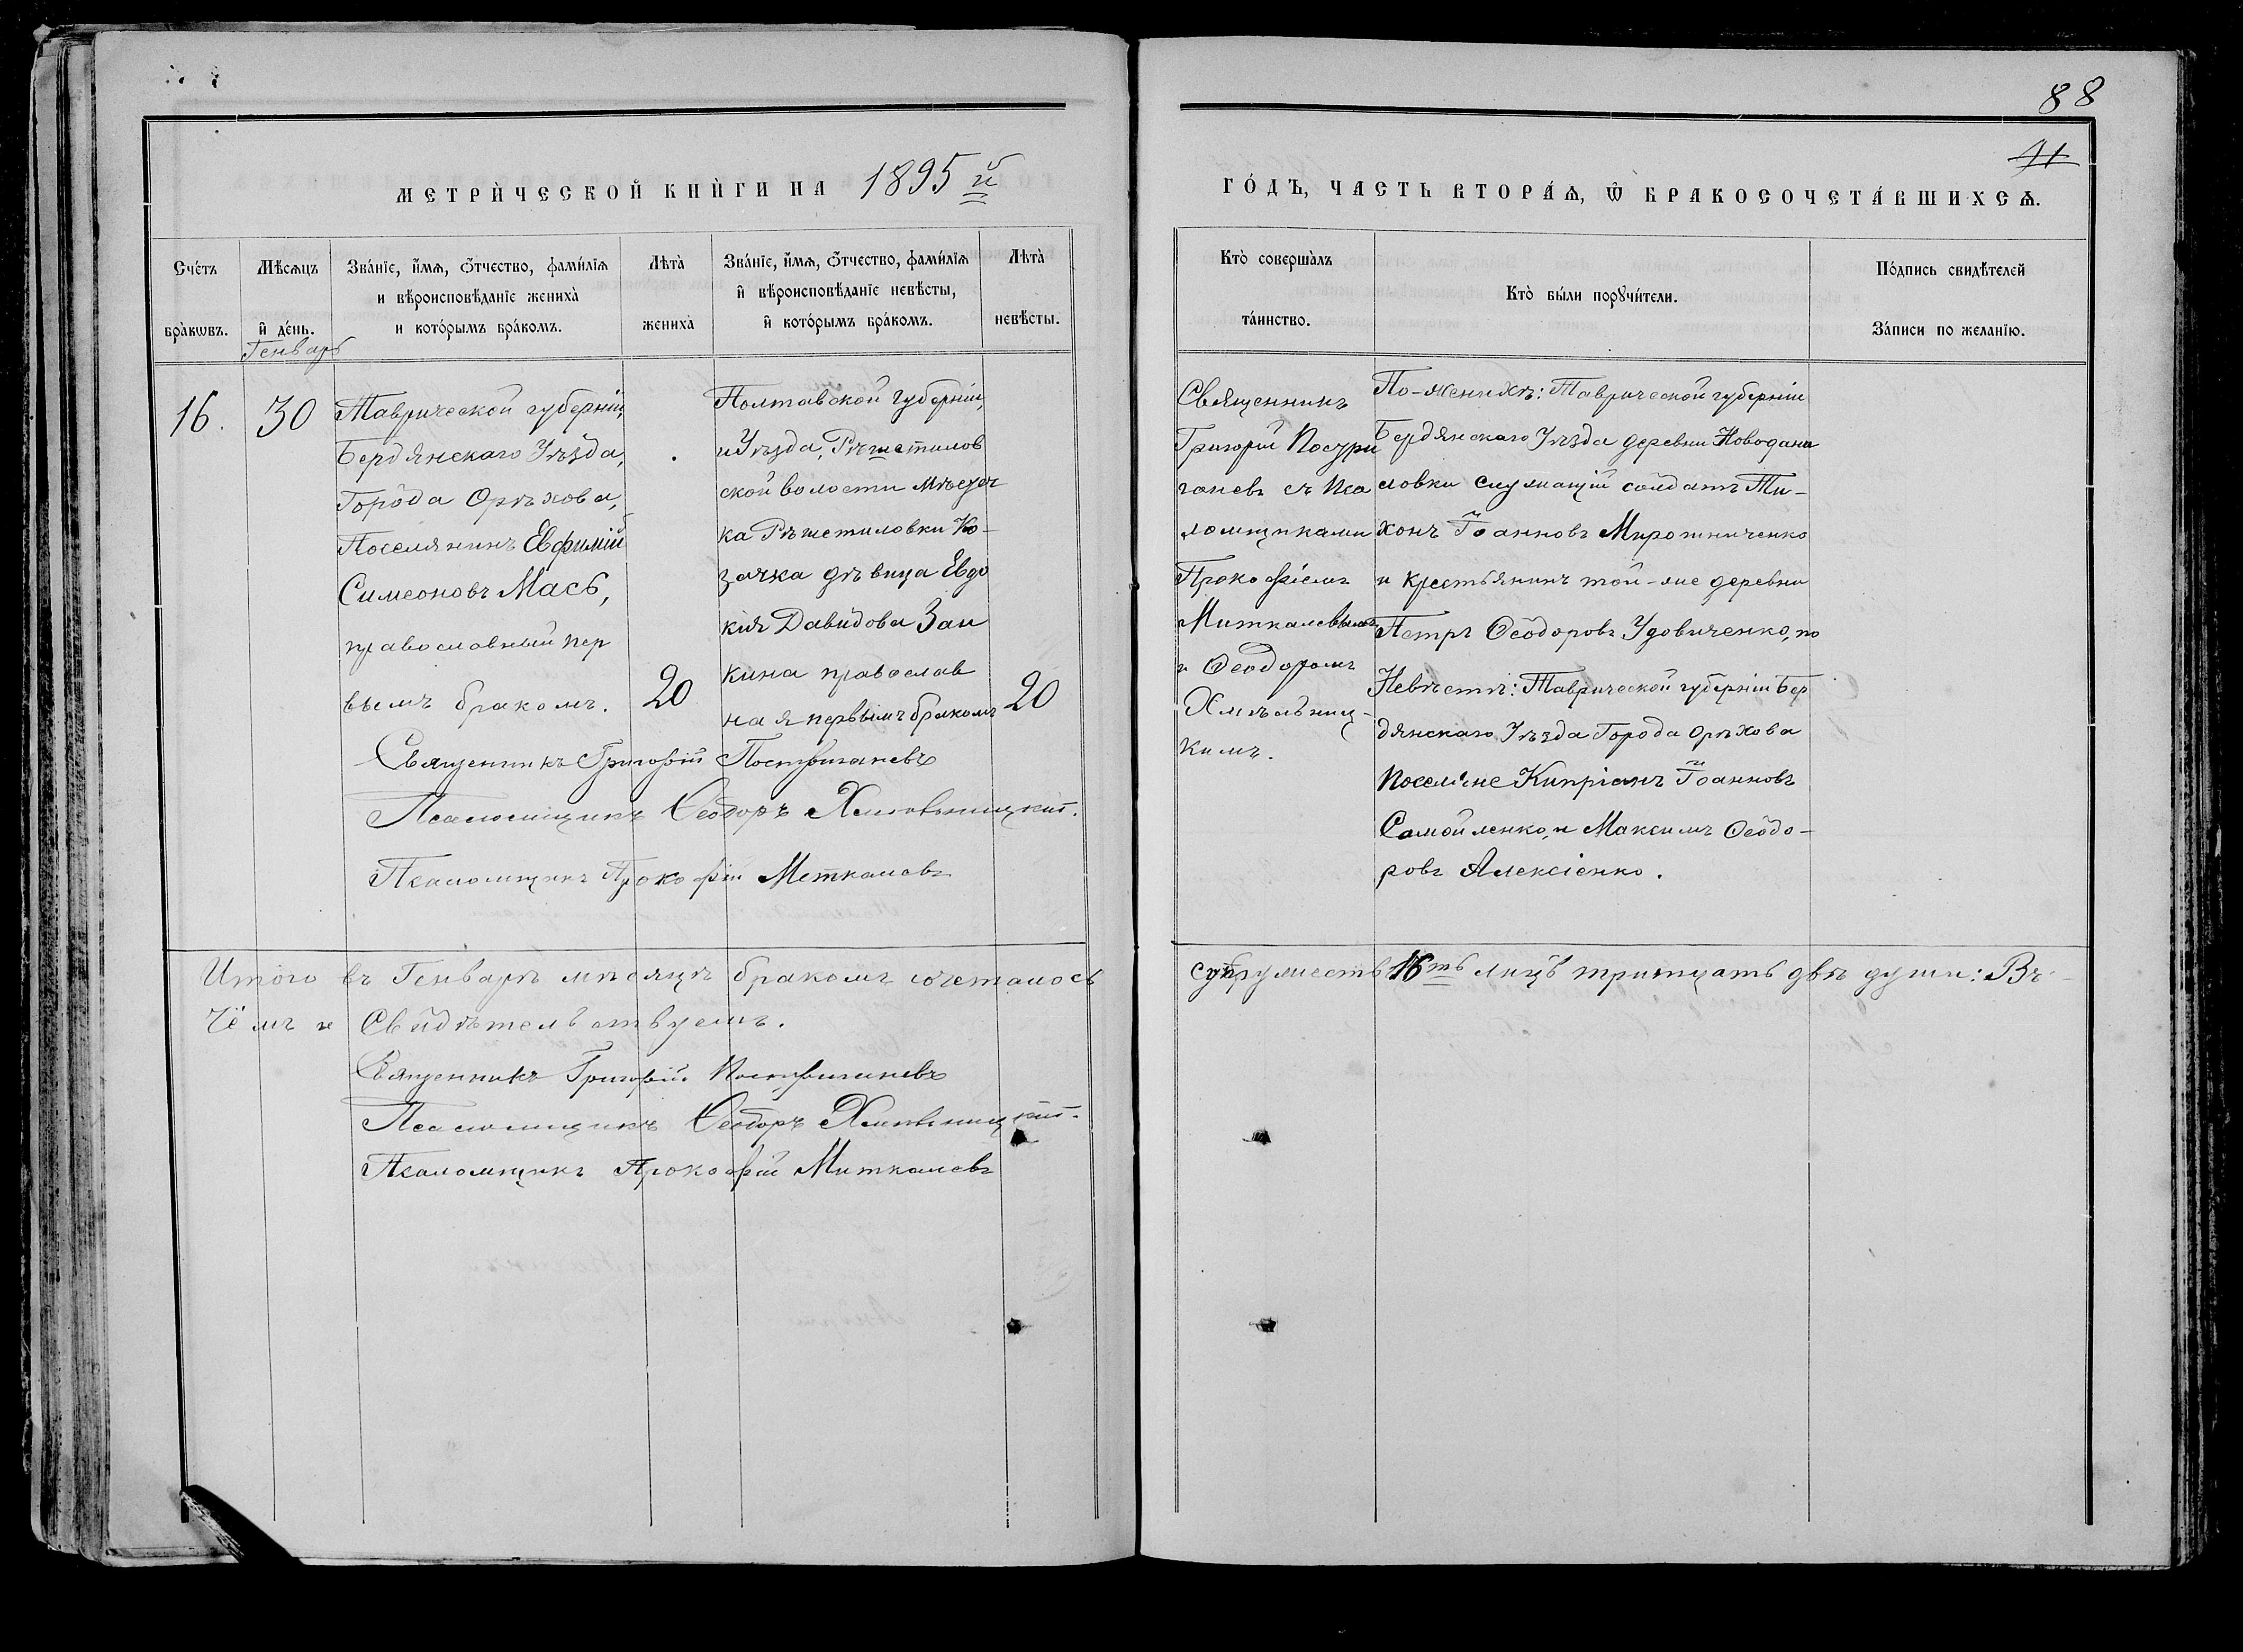 88
41
МЕТРИ́ЧЕСКОЙ КНИ́ГИ НА 1895 й
ГО́ДЪ, ЧАСТЬ ВТОРА́Ѧ, Ѿ БРАКОСОЧЕТА́ВШИХСѦ.
Сче́тъ
бра́кѡвъ.
Мѣ́сѧцъ
и҆ де́нь.
Генварь
Зва́нїе, и҆́мѧ, ѻ҆́тчество, фами́лїѧ
и вѣроисповѣ́данїе жениха̀
и кото́рымъ бра́комъ.
Лѣта̀
жениха̀
Зва́нїе, и҆́мѧ, ѻ҆́тчество, фами́лїѧ
и҆ вѣроисповѣ́данїе невѣ́сты,
и҆ кото́рымъ бра́комъ.
Лѣта̀
невѣ́сты.
Кто̀ соверша̀лъ
та́инство.
Кто̀ бы́ли порꙋчи́тели.
По́дпись свидѣ́телей
За́писи по жела́нїю.
16.
30
Таврической губерніи,
Бердянскаго Уѣзда,
Города Орѣхова,
Поселянинъ Евфимій
Симеоновъ Мась,
православный пер
вымъ бракомъ.
20
Полтавской губерніи,
и Уѣзда, Рѣшетилов
ской волости мѣстеч
ка Рѣшетиловки Ко-
зачка дѣвица Евдо
кія Давидова Заи
кина православ
ная первымъ бракомъ
20
Священникъ Григорій Постриганевъ
Псаломщикъ Ѳеодоръ Хмѣльницкій.
Псаломщикъ Прокофій Миткалевъ
Священникъ
Григорій Постри
ганевъ съ Пса
ломщиками
Прокофіемъ
Миткалевымъ
и Ѳеодоромъ
Хмѣльниц-
кимъ.
По-женихѣ: Таврической губерніи
Бердянскаго Уѣзда деревни Новодани
ловки служащій солдатъ Ти-
хонъ Іоанновъ Мирошниченко
и крестьянинъ той-же деревни
Петръ Ѳеодоровъ Удовиченко, по
Невѣстѣ: Таврической губерніи Бер
дянскаго Уѣзда Города Орѣхова
Поселяне Кипріанъ Іоанновъ
Самойленко, и Максимъ Ѳеодо-
ровъ Алексіенко.
Итого въ Генварѣ мѣсяцѣ бракомъ сочеталось
супружествъ 16ть лицъ тритцать двѣ души: Въ
чёмъ и Свидѣтельствуемъ.
Священникъ Григорій Постриганевъ
Псаломщикъ Ѳеодоръ Хмѣльницкій.
Псаломщикъ Прокофій Миткалевъ